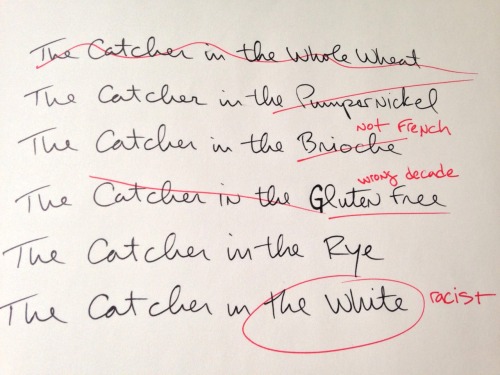 The Catcher in the Whole Wheat
The Catcher in the Pumpernickel
not French
The Catcher in the Brioche
wrong decade
The Catcher in the Gluten Free
The Catcher in the Rye
The Catcher in the White racist